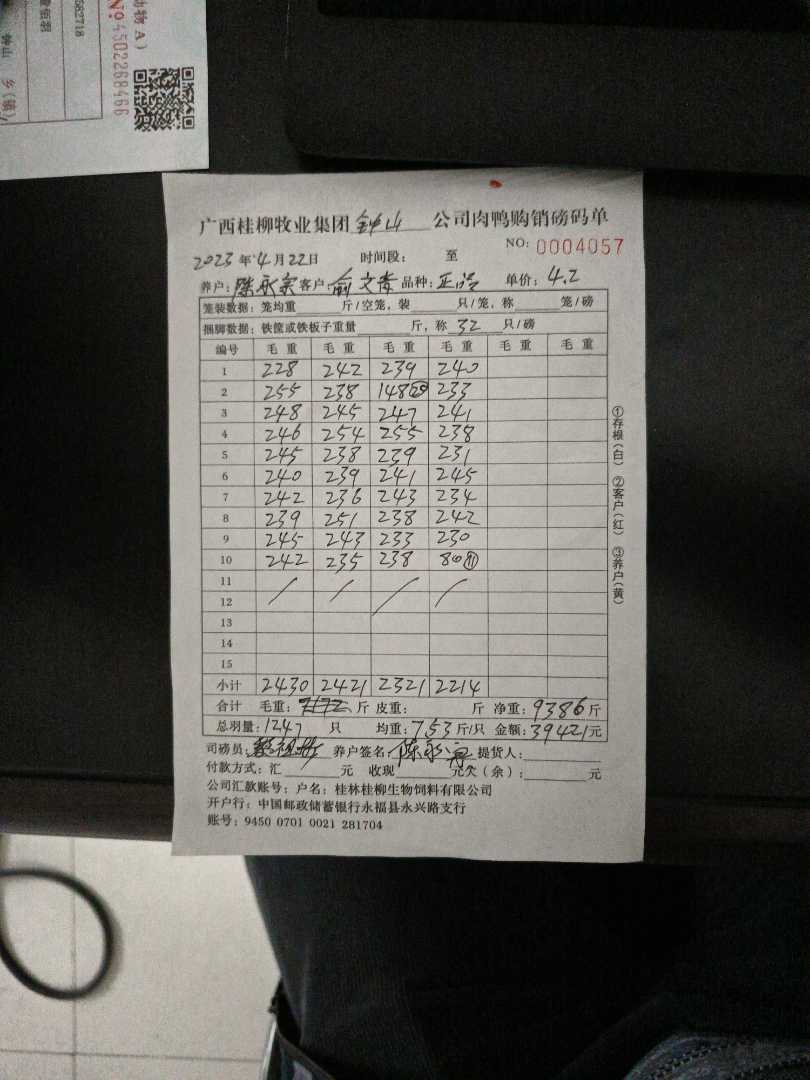 582718
动物 A)
No 4502268466
钟山
乡(镇)
广西桂柳牧业集团 钟山 公司肉鸭购销磅码单
NO: 0004057
2023 年 4 月 22 日 时间段: 至
养户: 陈永宗 客户: 俞文贵 品种: 正品 单价: 4.2
笼装数据: 笼均重 斤/空笼, 装 只/笼, 称 笼/磅
捆脚数据: 铁筐或铁板子重量 斤, 称 32 只/磅
编号 毛重 毛重 毛重 毛重 毛重 毛重
1 228 242 239 240
2 255 238 148⑳ 233
3 248 245 247 241
4 246 254 255 238
5 245 238 239 231
6 240 239 241 245
7 242 236 243 234
8 239 251 238 242
9 245 243 233 230
10 242 235 238 80⑪
11
12
13
14
15
小计 2430 2421 2321 2214
合计 毛重: 7172 斤 皮重: 斤 净重: 9386 斤
总羽量: 1247 只 均重: 7.53 斤/只 金额: 39421 元
司磅员: 养户签名: 提货人:
付款方式: 汇 元 收现 元欠(余): 元
公司汇款账号: 户名: 桂林桂柳生物饲料有限公司
开户行: 中国邮政储蓄银行永福县永兴路支行
账号: 9450 0701 0021 281704
①存根(白) ②客户(红) ③养户(黄)